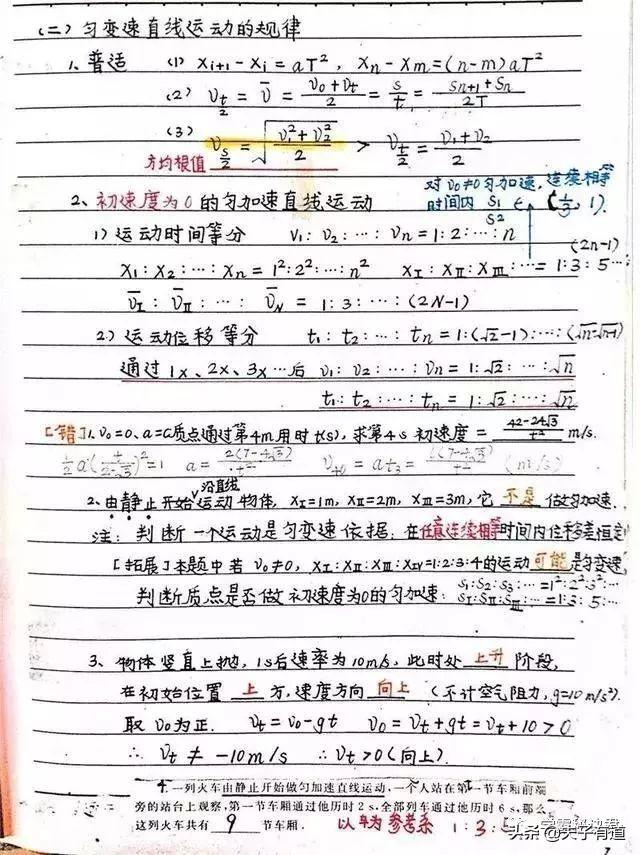 (二) 匀变速直线运动的规律
1、普适 (1) x_{i+1} - x_i = aT², x_n - x_m = (n-m)aT²
(2) v_{t/2} = v̄ = (v₀+v_t)/2 = s/t = (s_{n+1}+s_n)/2T
(3) v_{s/2} = √((v₁²+v₂²)/2) > v_{t/2} = (v₁+v₂)/2
方均根值
对v₀≠0匀加速,连续相等
时间内 s₁/s₂ ∈ (1/3, 1).
2、初速度为0的匀加速直线运动
1) 运动时间等分 v₁:v₂:⋯:v_n = 1:2:⋯:n
x₁:x₂:⋯:x_n = 1²:2²:⋯:n² x_Ⅰ:x_Ⅱ:x_Ⅲ:⋯ = 1:3:5⋯(2n-1)
v̄_Ⅰ:v̄_Ⅱ:⋯:v̄_N = 1:3:⋯:(2N-1)
2.) 运动位移等分 t₁:t₂:⋯:t_n = 1:(√2-1):⋯:(√n-√n-1)
通过1x、2x、3x⋯后 v₁:v₂:⋯:v_n = 1:√2:⋯:√n
t₁:t₂:⋯:t_n = 1:√2:⋯:√n
[错]1. v₀=0、a=C质点通过第4m用时t(s), 求第4s初速度 = (42-24√3)/t² m/s.
v₄₀ = at₃ = (m/s)
2. 由静止开始沿直线运动物体, x_Ⅰ=1m, x_Ⅱ=2m, x_Ⅲ=3m, 它 不是 做匀加速.
注: 判断一个运动是匀变速依据: 在任意连续相等时间内位移差恒定
[拓展]本题中若 v₀≠0, x_Ⅰ:x_Ⅱ:x_Ⅲ:x_Ⅳ=1:2:3:4的运动可能是匀变速
判断质点是否做初速度为0的匀加速: s₁:s₂:s₃:⋯=1²:2²:3²:⋯
s_Ⅰ:s_Ⅱ:s_Ⅲ:⋯=1:3:5:⋯
3、物体竖直上抛, 1s后速率为10m/s, 此时处 上升 阶段,
在初始位置 上 方, 速度方向 向上 (不计空气阻力, g=10m/s²).
取v₀为正. v_t = v₀-gt v₀ = v_t+gt = v_t+10 > 0
∴ v_t ≠ -10m/s ∴ v_t>0(向上).
4. 一列火车由静止开始做匀加速直线运动,一个人站在第一节车厢前端
旁的站台上观察,第一节车厢通过他历时2 s,全部列车通过他历时6 s,那么
这列火车共有 9 节车厢. 以车为参考系 1:3:5
头条@夫子有道